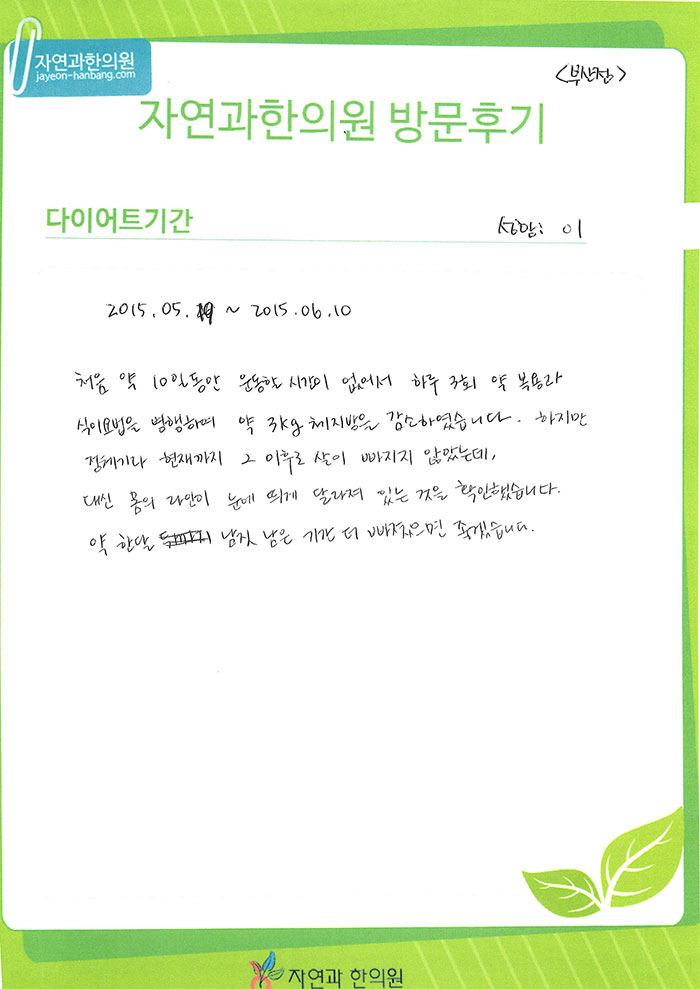 자연과한의원
jayeon-hanbang.com
<부산점>
자연과한의원 방문후기
다이어트기간
성함: 이
2015.05.19 ~ 2015.06.10
처음 약 10일동안 운동할 시간이 없어서 하루 3회 약 복용과
식이요법을 병행하며 약 3kg 체지방을 감소하였습니다. 하지만
정체기라 현재까지 그 이후로 살이 빠지지 않았는데,
대신 몸의 라인이 눈에 띄게 달라져 있는 것을 확인했습니다.
약 한달 남짓 남은 기간 더 빠졌으면 좋겠습니다.
자연과 한의원